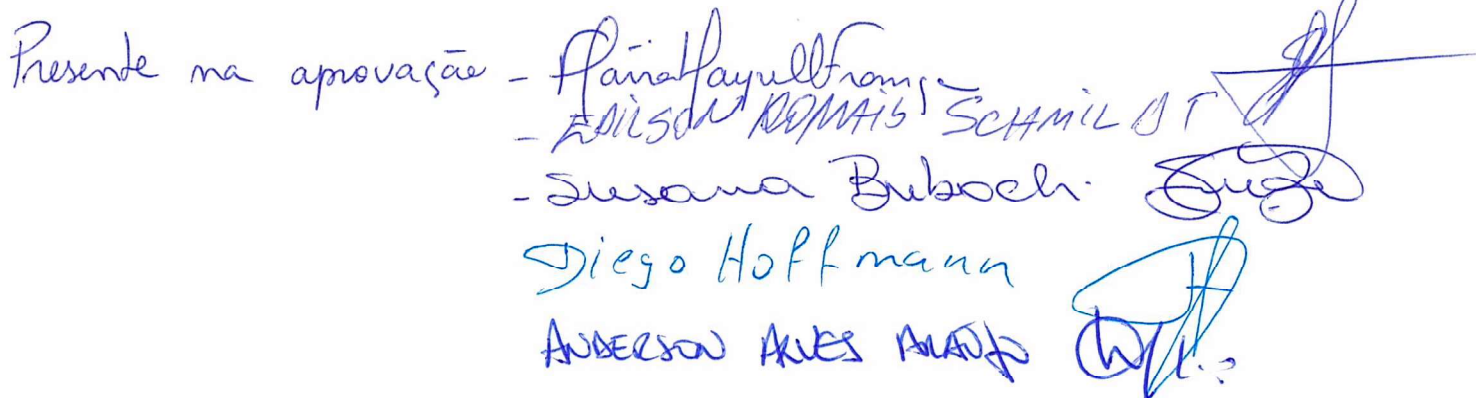 Presente na aprovação -
- EDILSON ROMAIS SCHMILDT
- Susana Buboch.
Diego Hoffmann
ANDERSON ALVES ARAÚJO